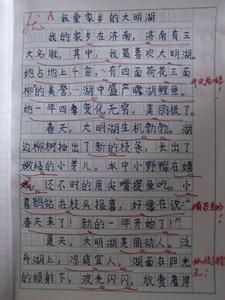 优 A 我爱家乡的大明湖
我的家乡在济南,济南有三
大名胜,其中,我最喜欢大明湖。
她占地上千亩,有四面荷花三面
柳的美誉,湖中盛产露湖鲤鱼。
她一年四季变化无穷,美丽极了。
春天,大明湖生机勃勃。湖
边柳树抽出了新的枝条,长出了
嫩绿的小芽儿。水中小野鸭在嬉
戏,还不时的用尖嘴捉鱼吃。小
喜鹊站在枝头报喜,好像在说:“
春天来了!新的一年开始了!”
夏天,大明湖美丽动人。泛
舟湖上,凉爽宜人。湖面在阳光
的照射下,波光闪闪,欣赏着岸